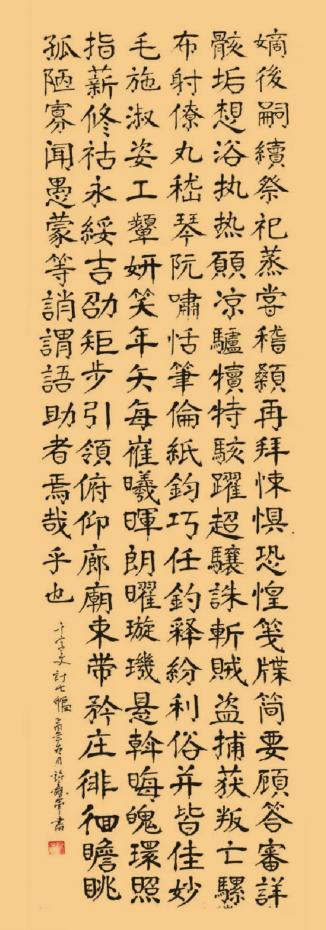 嫡後嗣續祭祀蒸尝稽顙再拜悚惧恐惶箋牒简要顧答審詳
骸垢想浴执热願凉驢犢特駭躍超驤誅斬賊盗捕获叛亡騾
布射僚丸嵇琴阮嘯恬筆倫紙鈞巧任釣释紛利俗并皆佳妙
毛施淑姿工颦妍笑年矢每崔曦暉朗曜璇璣悬斡晦魄環照
指薪修祜永綏吉劭矩步引領俯仰廊廟束带矜庄徘徊瞻眺
孤陋寡闻愚蒙等誚謂語助者焉哉乎也
千字文計七幅